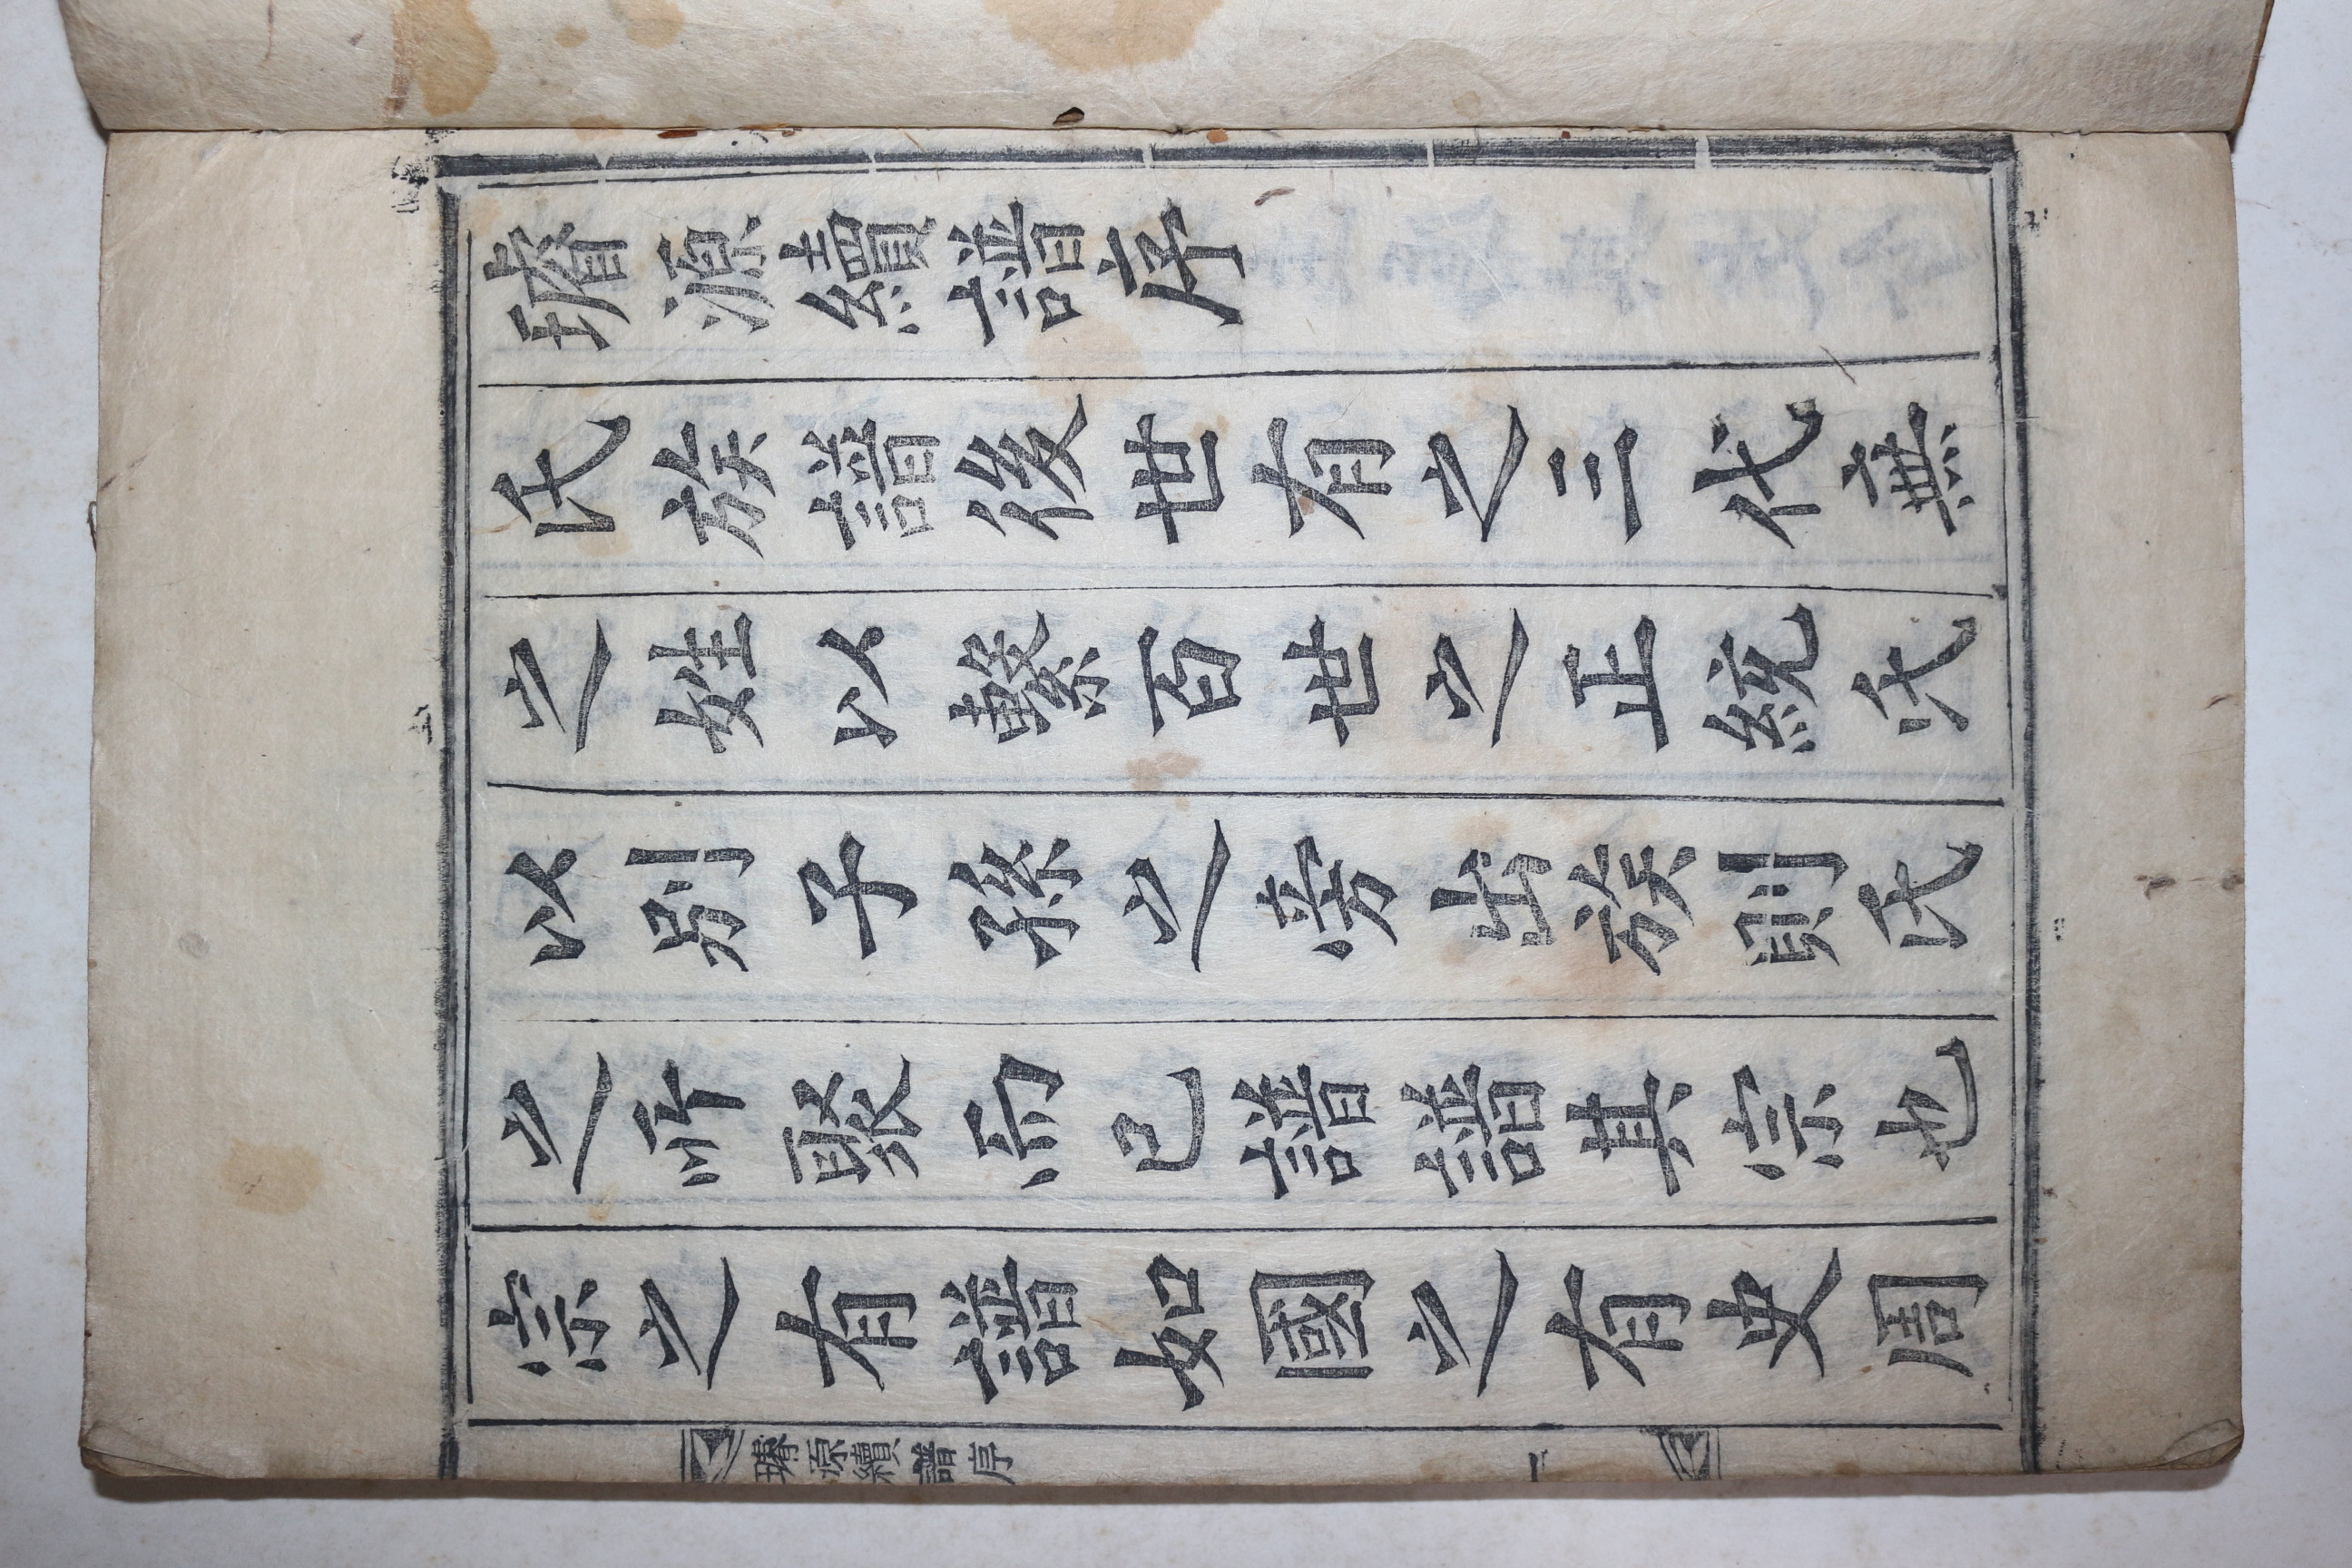 璿源續譜序
氏族譜後世有之三代無
之姓以繫百世之正統氏
以別子孫之旁出族則氏
之所聚而已譜譜其宗也
宗之有譜如國之有史周
璿源續譜序 一